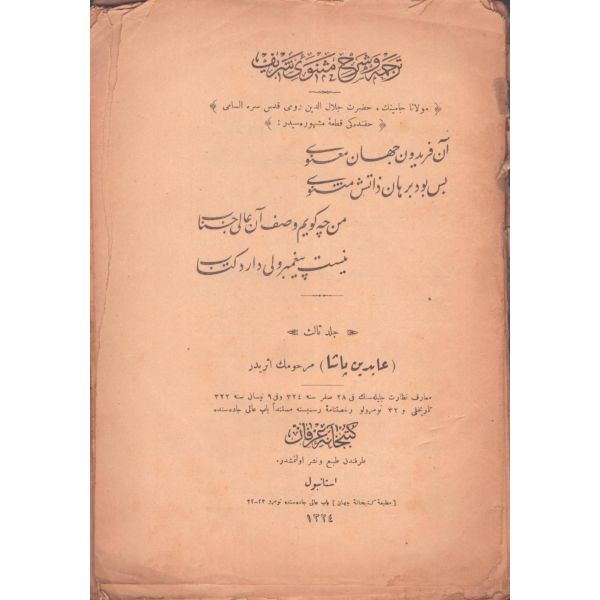 ترجمه و شرح مثنوی شریف
﴿ مولانا جامینك، حضرت جلال الدین رومی قدس سره السامی ﴾
﴿ حقنده‌كی قطعهٔ مشهوره‌سیدر : ﴾
آن فریدون جهان معنوی
بس بود برهان ذاتش مثنوی
من چه كویم وصف آن عالی جناب
نیست پیغمبر ولی دارد كتاب
جلد ثالث
( عابدین پاشا ) مرحومك اثریدر
معارف نظارت جلیله‌سنك فی ٢٨ صفر سنه ٣٢٤ وفی ٩ نیسان سنه ٣٢٢
تاریخلی و ٣٢ نومرولو رخصتنامهٔ رسمیسنه مستنداً باب عالی جاده‌سنده
كتبخانهٔ عرفان
طرفندن طبع و نشر اولنمشدر.
استانبول
[ مطبعهٔ كتبخانهٔ جهان ] باب عالی جاده‌سنده نومرو ٢٣–٣٢
١٣٢٤